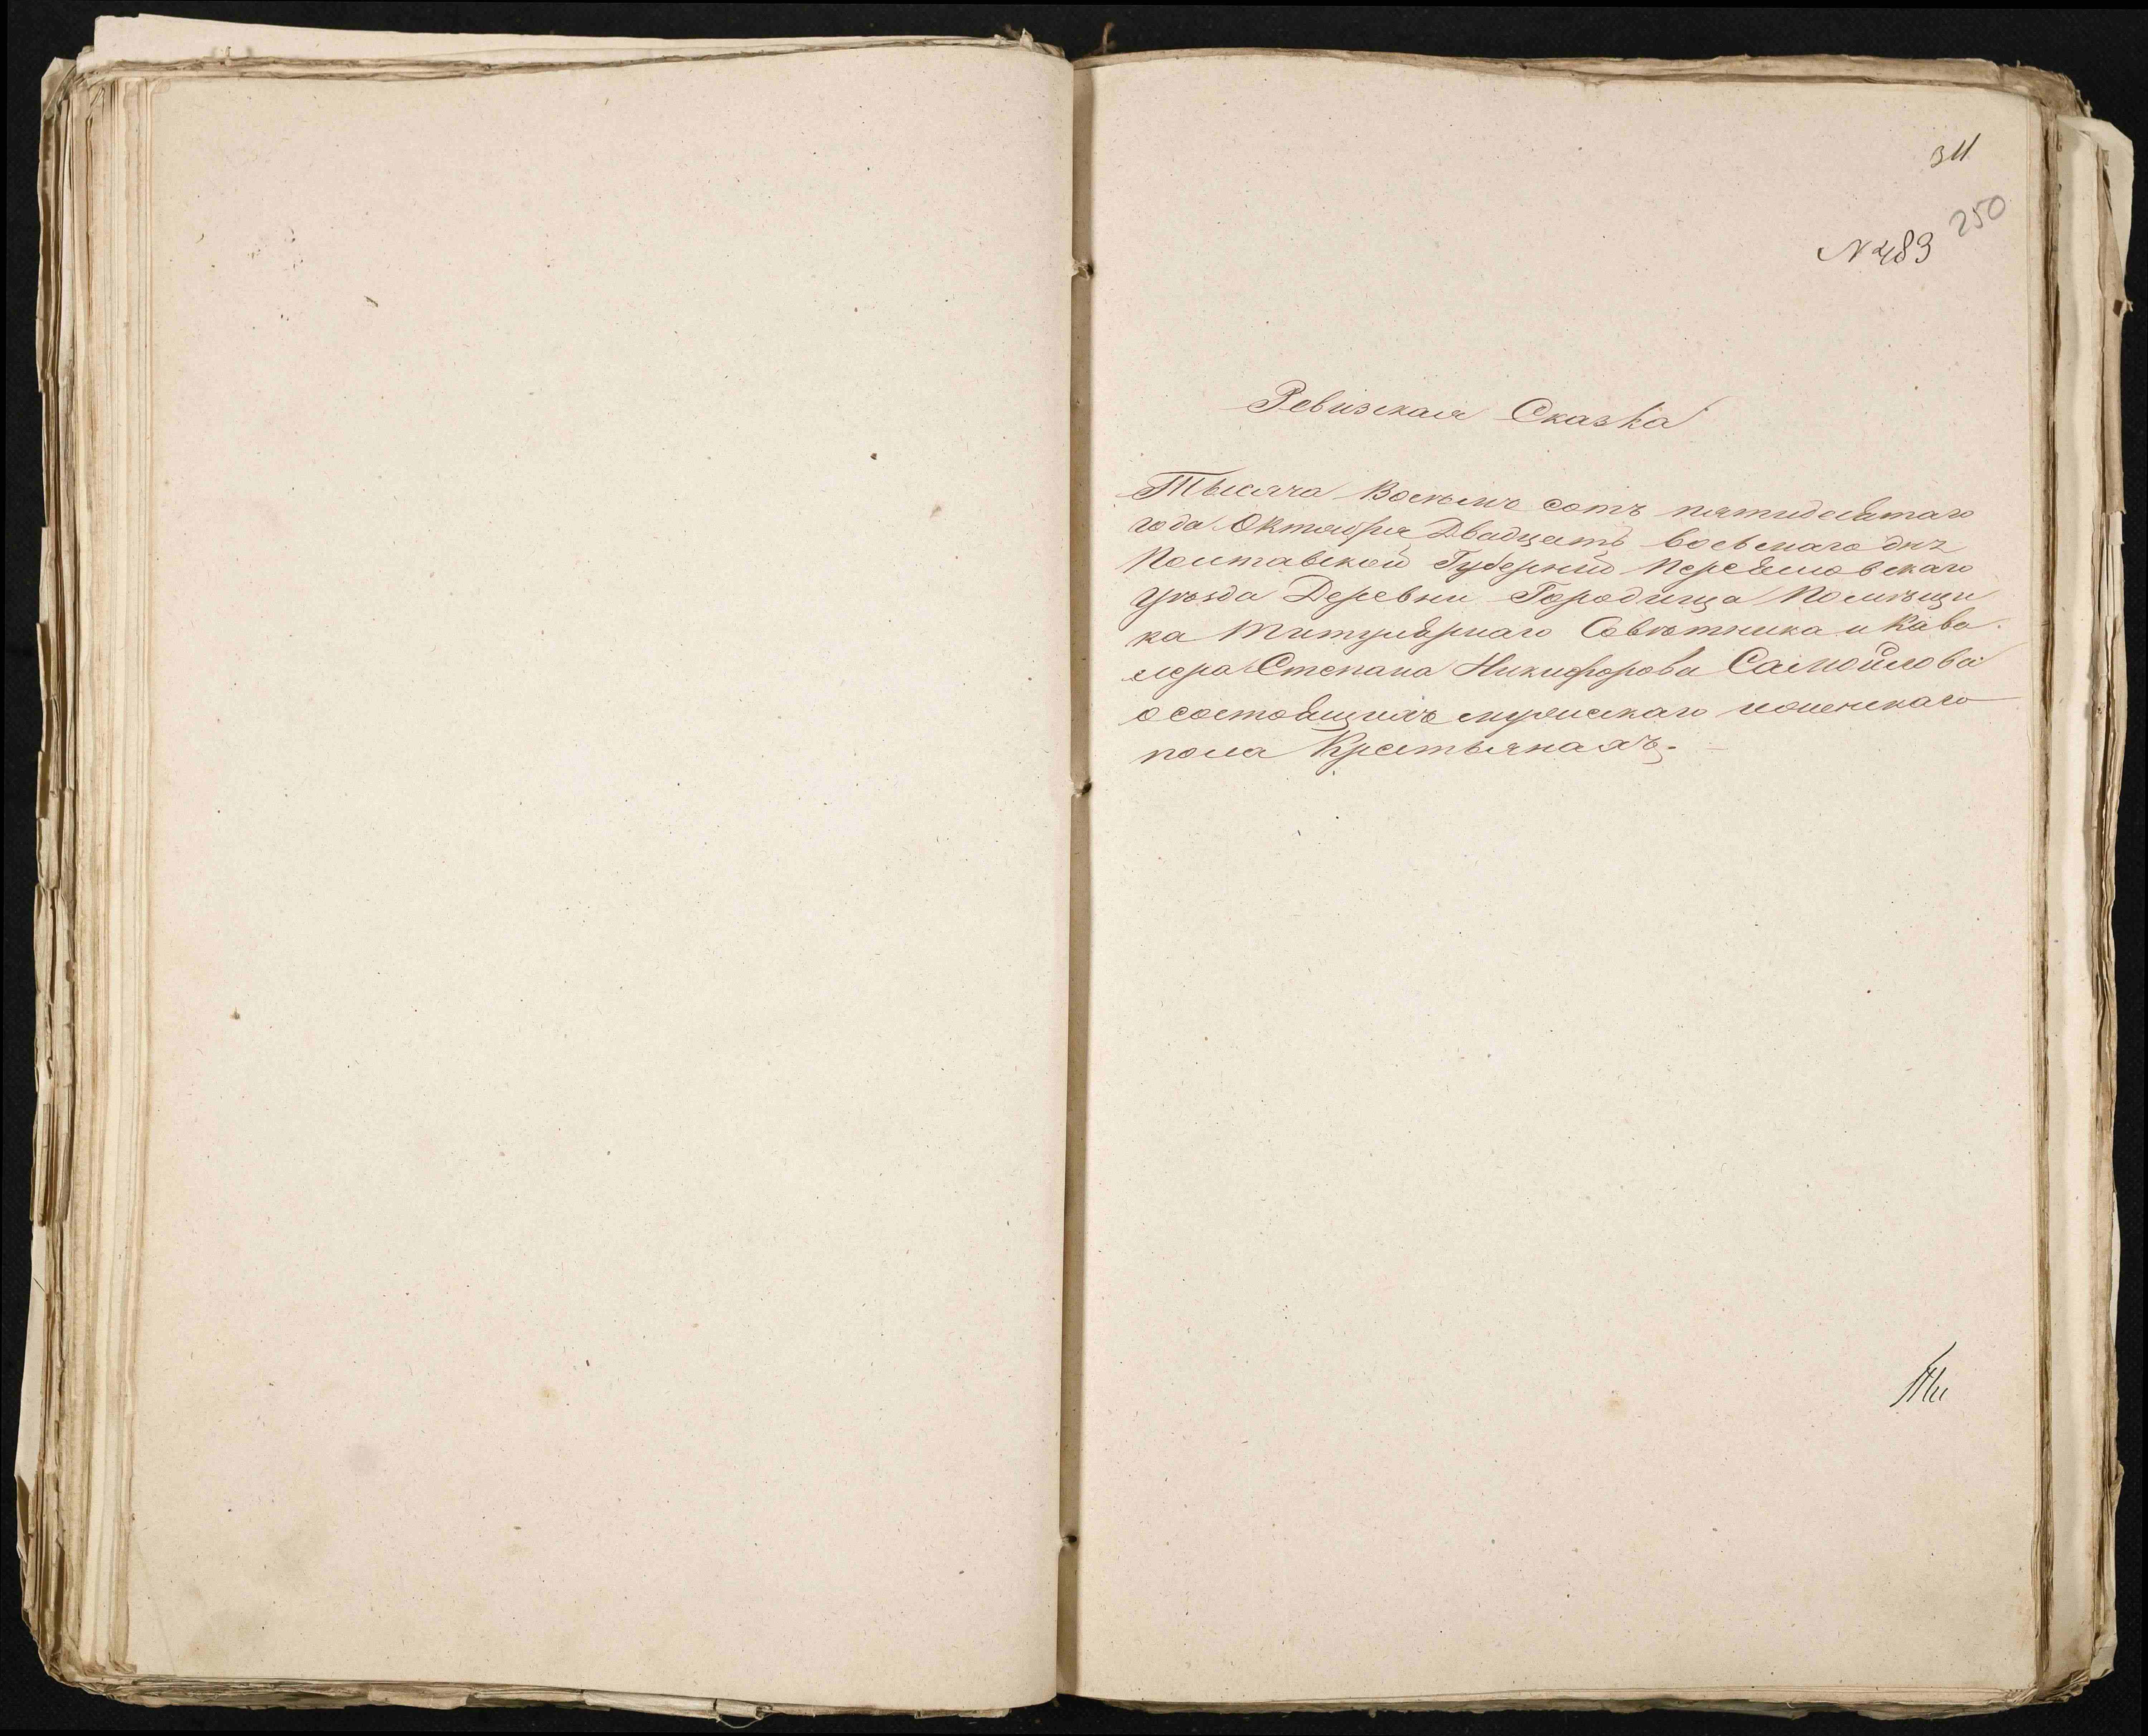 311
250
№ 483
Ревизская Сказка
Тысяча Восемь сотъ пятидесятаго
года Октября Двадцать восьмаго дня
Полтавской Губерніи Переяславскаго
уѣзда Деревни Городища Помѣщи
ка Титулярнаго Совѣтника и Кава
лера Степана Никифорова Самойлова
о состоящихъ мужескаго и женскаго
пола Крестьянахъ.